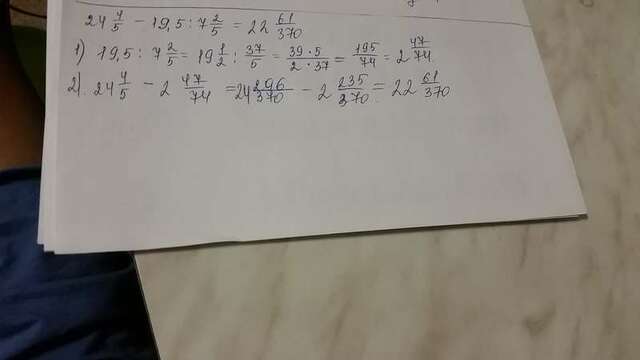 24 4/5 − 19,5 : 7 2/5 = 22 61/370
1) 19,5 : 7 2/5 = 19 1/2 : 37/5 = 39·5/2·37 = 195/74 = 2 47/74
2) 24 4/5 − 2 47/74 = 24 296/370 − 2 235/370 = 22 61/370